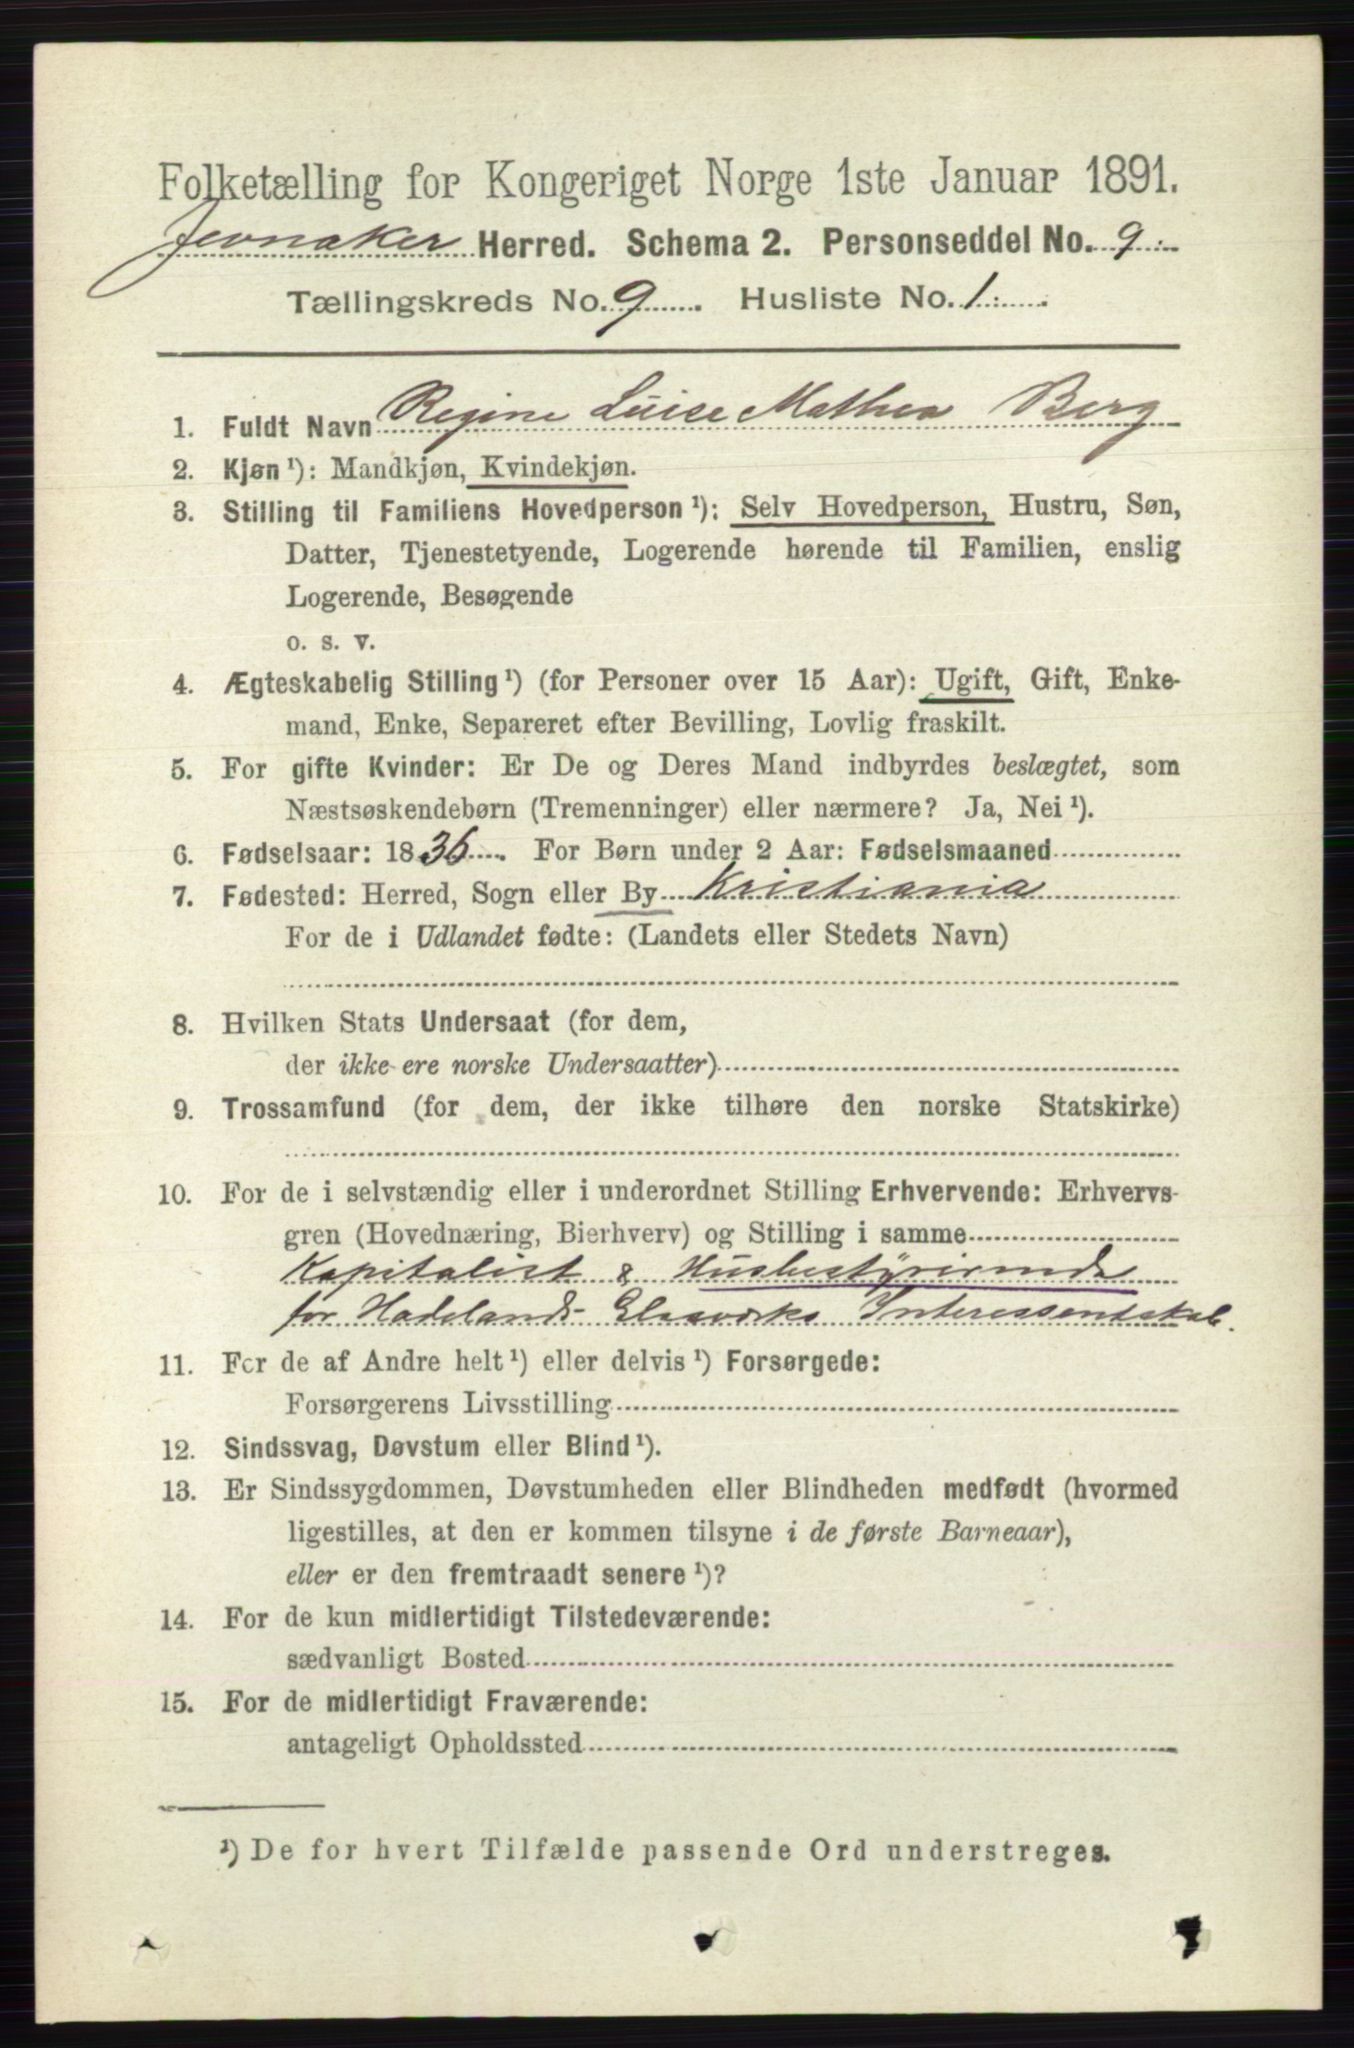 Folketælling for Kongeriget Norge 1ste Januar 1891.
Jevnaker Herred. Schema 2. Personseddel No. 9.
Tællingskreds No. 9. Husliste No. 1.
1. Fuldt Navn Regine Luise Mathea Berg
2. Kjøn ¹): Mandkjøn, Kvindekjøn.
3. Stilling til Familiens Hovedperson ¹): Selv Hovedperson, Hustru, Søn,
Datter, Tjenestetyende, Logerende hørende til Familien, enslig
Logerende, Besøgende
o. s. v.
4. Ægteskabelig Stilling ¹) (for Personer over 15 Aar): Ugift, Gift, Enke-
mand, Enke, Separeret efter Bevilling, Lovlig fraskilt.
5. For gifte Kvinder: Er De og Deres Mand indbyrdes beslægtet, som
Næstsøskendebørn (Tremenninger) eller nærmere? Ja, Nei ¹).
6. Fødselsaar: 1836. For Børn under 2 Aar: Fødselsmaaned
7. Fødested: Herred, Sogn eller By Kristiania
For de i Udlandet fødte: (Landets eller Stedets Navn)
8. Hvilken Stats Undersaat (for dem,
der ikke ere norske Undersaatter)
9. Trossamfund (for dem, der ikke tilhøre den norske Statskirke)
10. For de i selvstændig eller i underordnet Stilling Erhvervende: Erhvervs-
gren (Hovednæring, Bierhverv) og Stilling i samme
Kapitalist & Husbestyrerinde
for Hadelands Glasværks Interessentskab.
11. For de af Andre helt ¹) eller delvis ¹) Forsørgede:
Forsørgerens Livsstilling
12. Sindssvag, Døvstum eller Blind ¹).
13. Er Sindssygdommen, Døvstumheden eller Blindheden medfødt (hvormed
ligestilles, at den er kommen tilsyne i de første Barneaar),
eller er den fremtraadt senere ¹)?
14. For de kun midlertidigt Tilstedeværende:
sædvanligt Bosted
15. For de midlertidigt Fraværende:
antageligt Opholdssted
¹) De for hvert Tilfælde passende Ord understreges.